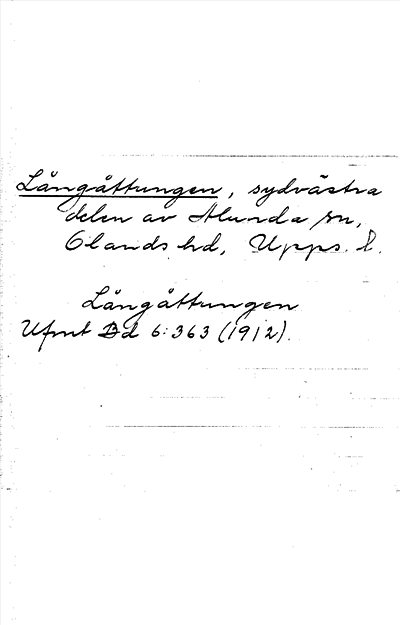 Långåttungen, sydvästra
delen av Alunda sn,
Olands hd, Upps. l.
Långåttungen
Ufmt Bd 6:363 (1912).